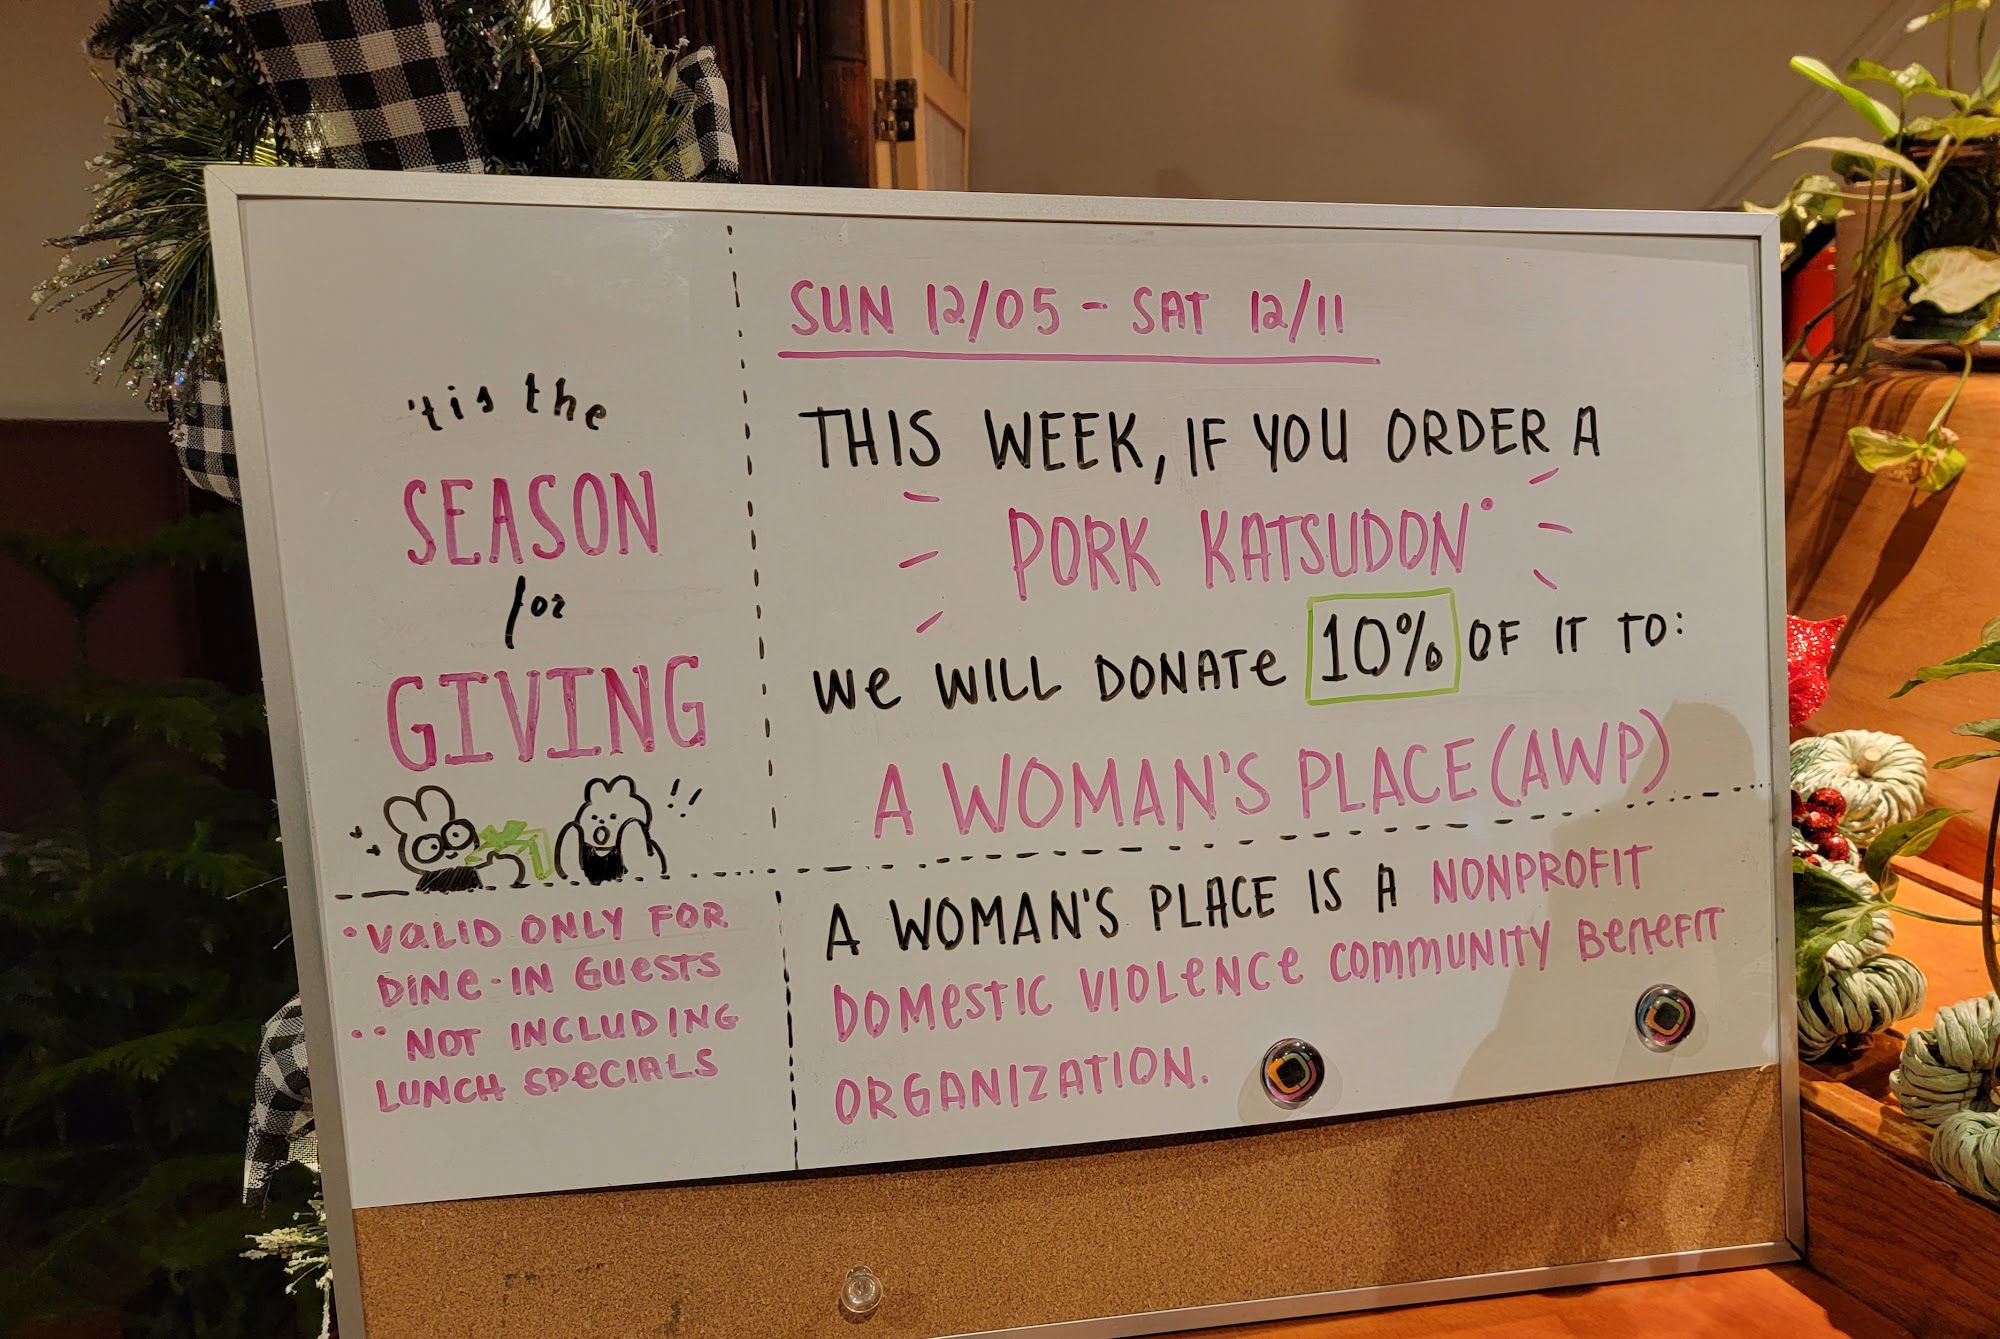 'tis the
SEASON
for
GIVING
!!
•VALID ONLY FOR
DINE-IN GUESTS
•• NOT INCLUDING
LUNCH SPECIALS
SUN 12/05 - SAT 12/11
THIS WEEK, IF YOU ORDER A
PORK KATSUDON•
WE WILL DONATE 10% OF IT TO:
A WOMAN'S PLACE (AWP)
A WOMAN'S PLACE IS A NONPROFIT
DOMESTIC VIOLENCE COMMUNITY BENEFIT
ORGANIZATION.